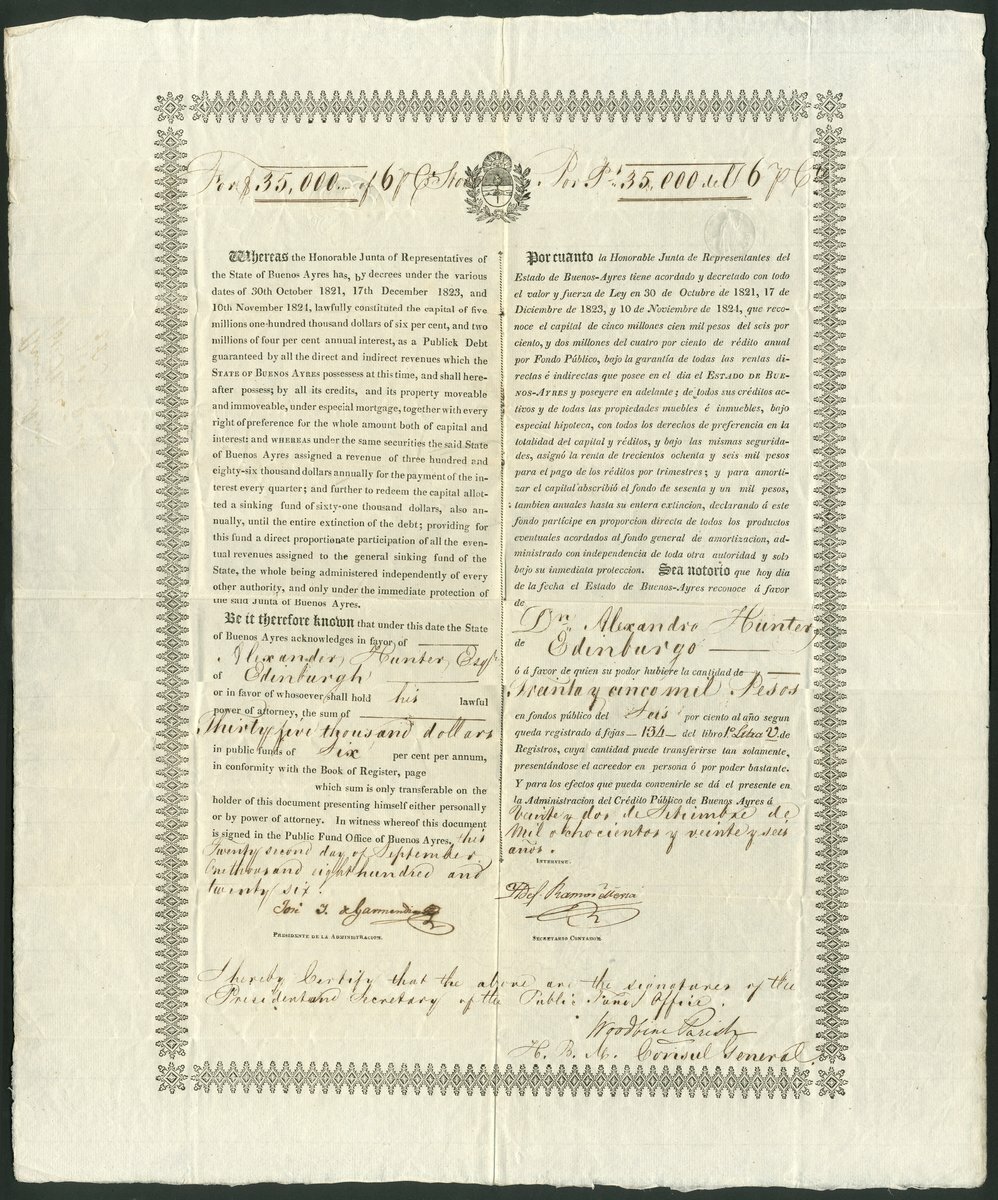 For $ 35,000 of 6 p Ct Stoc
Por Ps. 35,000 del 6 p Cto
Whereas the Honorable Junta of Representatives of
the State of Buenos Ayres has, by decrees under the various
dates of 30th October 1821, 17th December 1823, and
10th November 1824, lawfully constituted the capital of five
millions one-hundred thousand dollars of six per cent, and two
millions of four per cent annual interest, as a Publick Debt
guaranteed by all the direct and indirect revenues which the
STATE OF BUENOS AYRES possesses at this time, and shall here-
after possess; by all its credits, and its property moveable
and immoveable, under especial mortgage, together with every
right of preference for the whole amount both of capital and
interest: and WHEREAS under the same securities the said State
of Buenos Ayres assigned a revenue of three hundred and
eighty-six thousand dollars annually for the payment of the in-
terest every quarter; and further to redeem the capital allot-
ted a sinking fund of sixty-one thousand dollars, also an-
nually, until the entire extinction of the debt; providing for
this fund a direct proportionate participation of all the even-
tual revenues assigned to the general sinking fund of the
State, the whole being administered independently of every
other authority, and only under the immediate protection of
the said Junta of Buenos Ayres.
Be it therefore known that under this date the State
of Buenos Ayres acknowledges in favor of
Alexander Hunter, Esqr
of Edinburgh
or in favor of whosoever shall hold his lawful
power of attorney, the sum of
Thirty five thousand dollars
in public funds of Six per cent per annum,
in conformity with the Book of Register, page
which sum is only transferable on the
holder of this document presenting himself either personally
or by power of attorney. In witness whereof this document
is signed in the Public Fund Office of Buenos Ayres, this
Twenty second day of September
One thousand eight hundred and
twenty six.
José J. de Garmendia
PRESIDENTE DE LA ADMINISTRACION.
Por cuanto la Honorable Junta de Representantes del
Estado de Buenos-Ayres tiene acordado y decretado con todo
el valor y fuerza de Ley en 30 de Octubre de 1821, 17 de
Diciembre de 1823, y 10 de Noviembre de 1824, que reco-
noce el capital de cinco millones cien mil pesos del seis por
ciento, y dos millones del cuatro por ciento de rédito anual
por Fondo Público, bajo la garantía de todas las rentas di-
rectas é indirectas que posee en el dia el ESTADO DE BUE-
NOS-AYRES y poseyere en adelante; de todos sus créditos ac-
tivos y de todas las propiedades muebles é inmuebles, bajo
especial hipoteca, con todos los derechos de preferencia en la
totalidad del capital y réditos, y bajo las mismas segurida-
des, asignó la renta de trecientos ochenta y seis mil pesos
para el pago de los réditos por trimestres; y para amorti-
zar el capital abscribió el fondo de sesenta y un mil pesos,
tambien anuales hasta su entera extincion, declarando á este
fondo partícipe en proporcion directa de todos los productos
eventuales acordados al fondo general de amortizacion, ad-
ministrado con independencia de toda otra autoridad y solo
bajo su inmediata proteccion. Sea notorio que hoy dia
de la fecha el Estado de Buenos-Ayres reconoce á favor
de
Dn. Alexandro Hunter
de Edinburgo
ó á favor de quien su podor hubiere la cantidad de
Treinta y cinco mil Pesos
en fondos público del Seis por ciento al año segun
queda registrado á fojas 134 del libro 1º Letra V de
Registros, cuya cantidad puede transferirse tan solamente,
presentándose el acreedor en persona ó por poder bastante.
Y para los efectos que pueda convenirle se dá el presente en
la Administracion del Crédito Público de Buenos Ayres á
Veinte y dos de Setiembre de
mil ochocientos y veinte y seis
años.
INTERVINE.
Ramos Mexia
SECRETARIO CONTADOR.
I hereby Certify that the above are the signatures of the
President and Secretary of the Public Fund Office.
Woodbine Parish
H. B. M. Consul General.